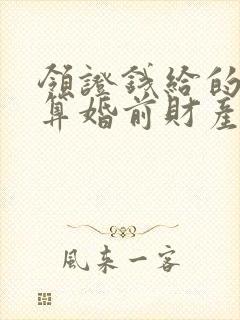 領證錢給的
算婚前財產
風來一客